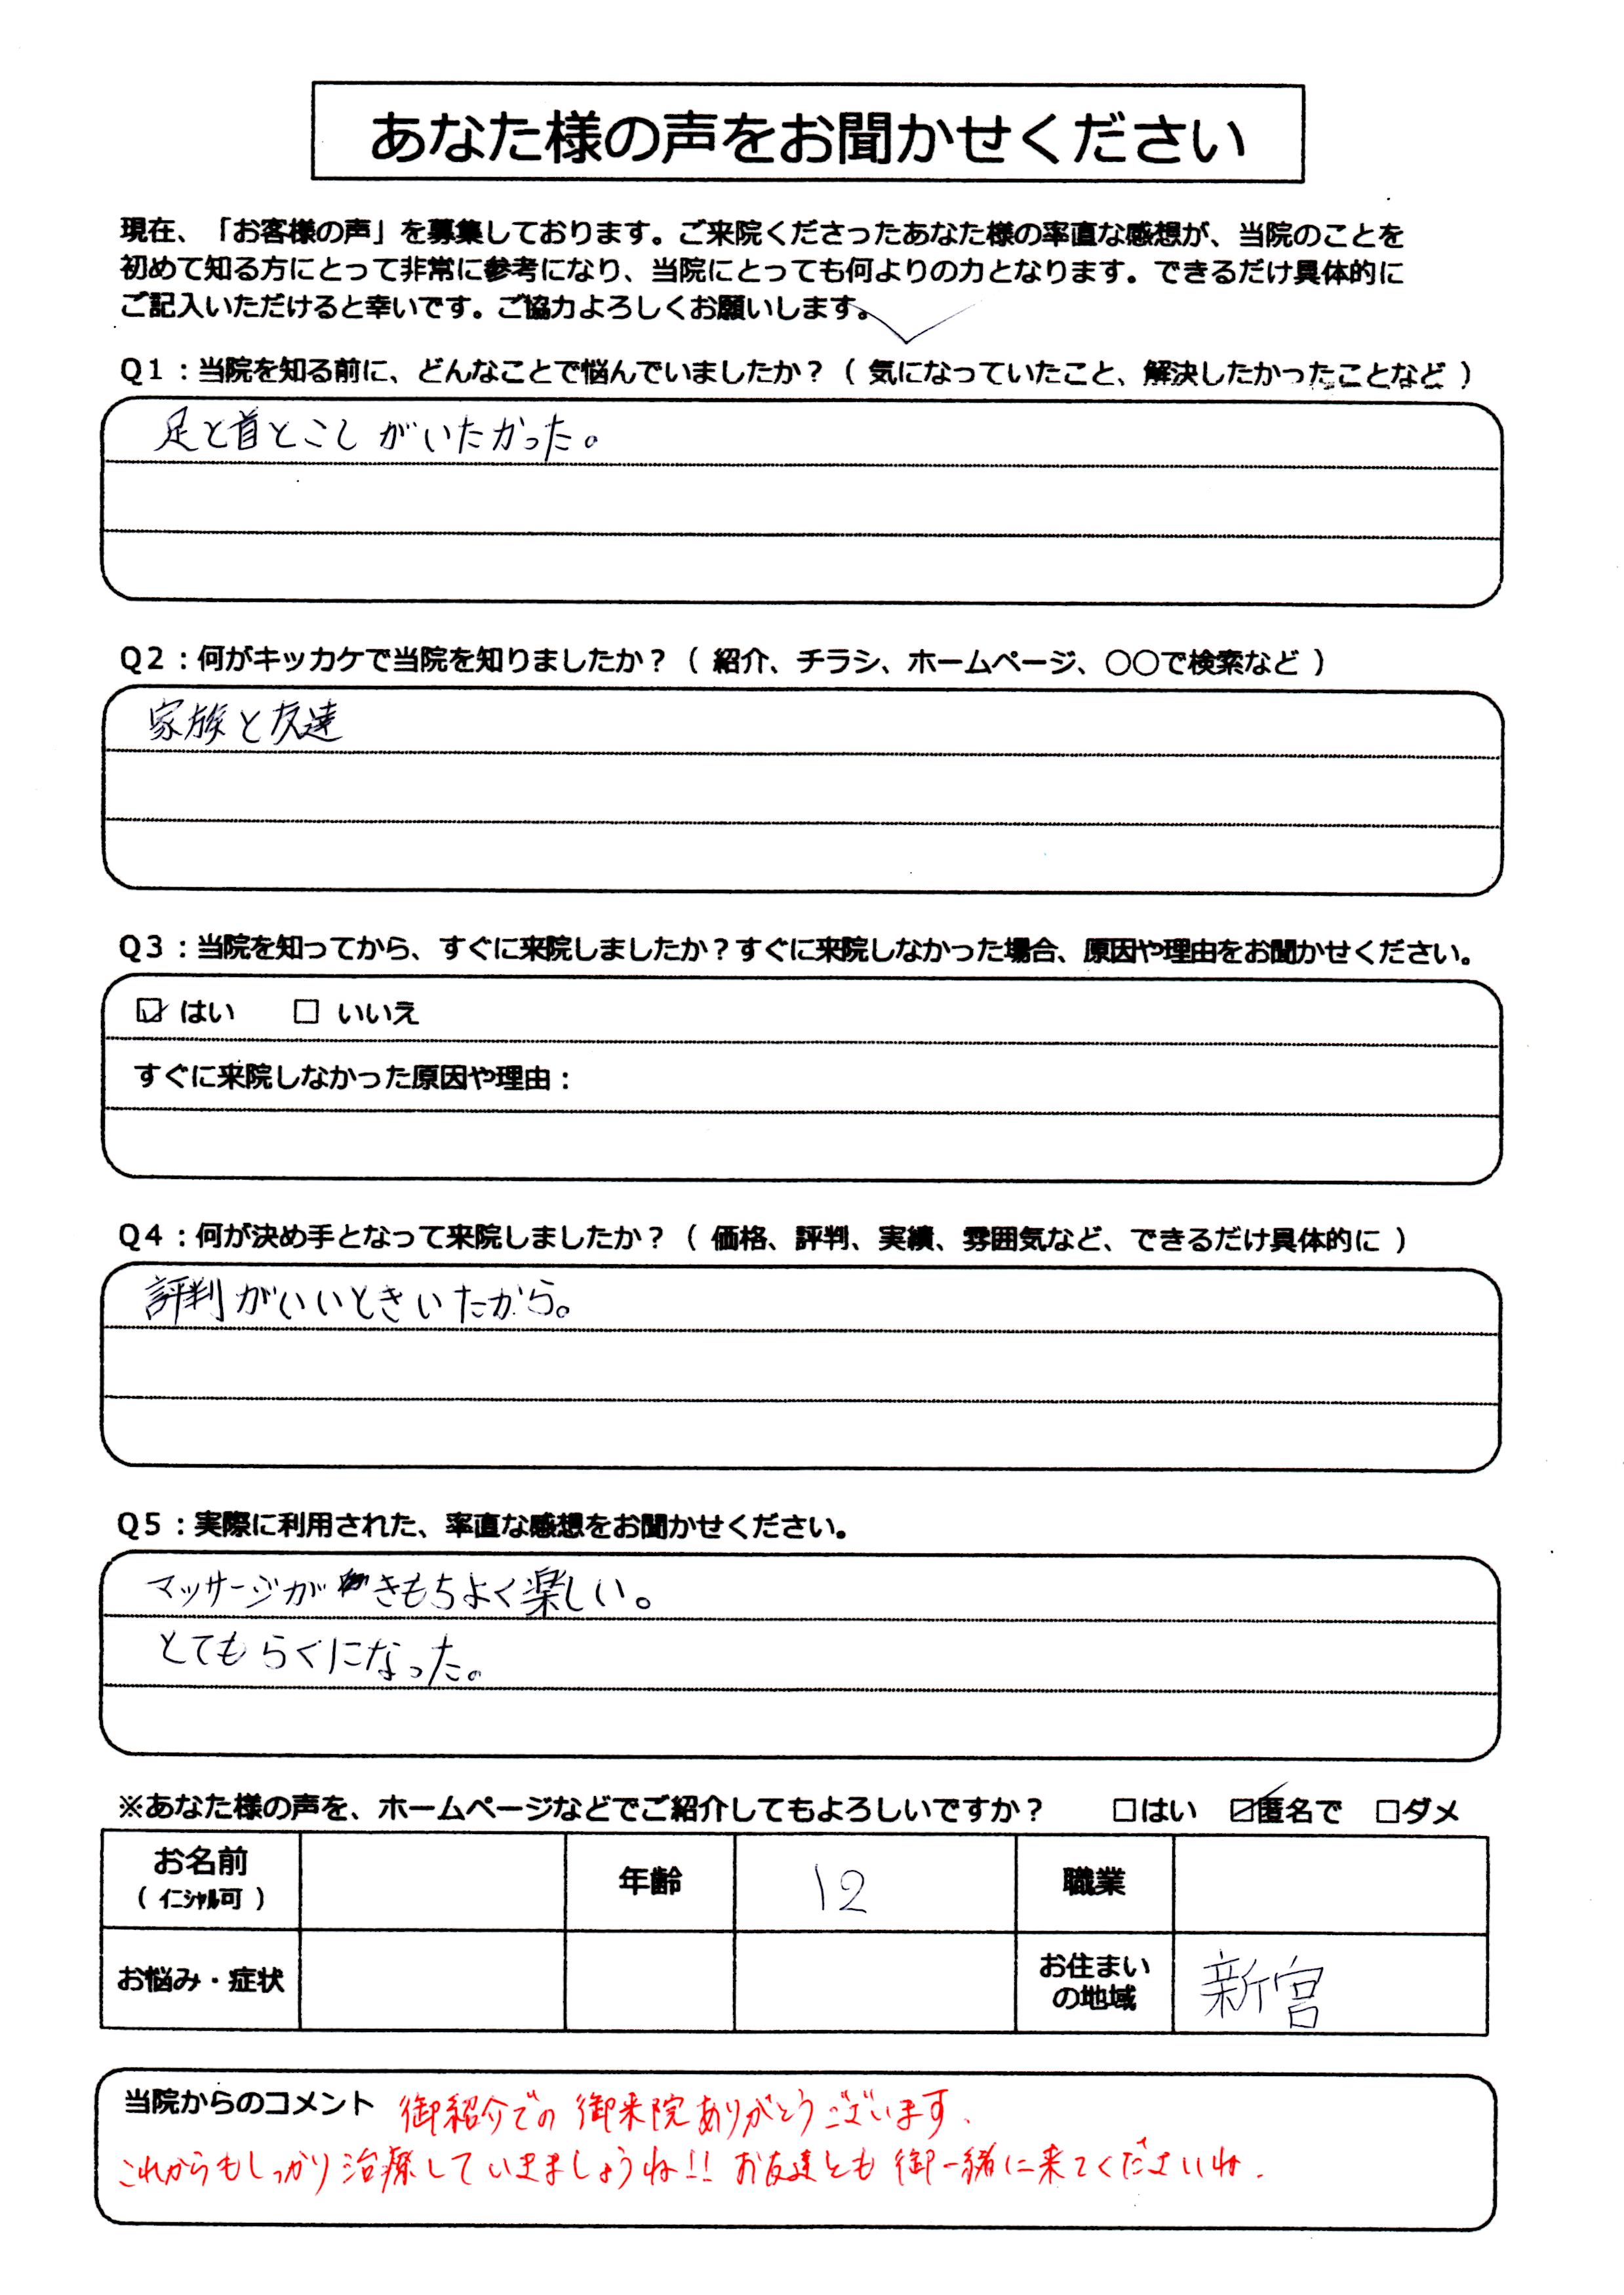 あなた様の声をお聞かせください
現在、「お客様の声」を募集しております。ご来院くださったあなた様の率直な感想が、当院のことを
初めて知る方にとって非常に参考になり、当院にとっても何よりの力となります。できるだけ具体的に
ご記入いただけると幸いです。ご協力よろしくお願いします。
Q1：当院を知る前に、どんなことで悩んでいましたか？（ 気になっていたこと、解決したかったことなど ）
足と首とこしがいたかった。
Q2：何がキッカケで当院を知りましたか？（ 紹介、チラシ、ホームページ、○○で検索など ）
家族と友達
Q3：当院を知ってから、すぐに来院しましたか？すぐに来院しなかった場合、原因や理由をお聞かせください。
☑ はい □ いいえ
すぐに来院しなかった原因や理由：
Q4：何が決め手となって来院しましたか？（ 価格、評判、実績、雰囲気など、できるだけ具体的に ）
評判がいいときいたから。
Q5：実際に利用された、率直な感想をお聞かせください。
マッサージがきもちよく楽しい。
とてもらくになった。
※あなた様の声を、ホームページなどでご紹介してもよろしいですか？ □はい ☑匿名で □ダメ
お名前 年齢 12 職業
（ イニシャル可 ）
お悩み・症状 お住まい 新宮
の地域
当院からのコメント 御紹介での御来院ありがとうございます、
これからもしっかり治療していきましょうね!! お友達とも御一緒に来てくださいね.